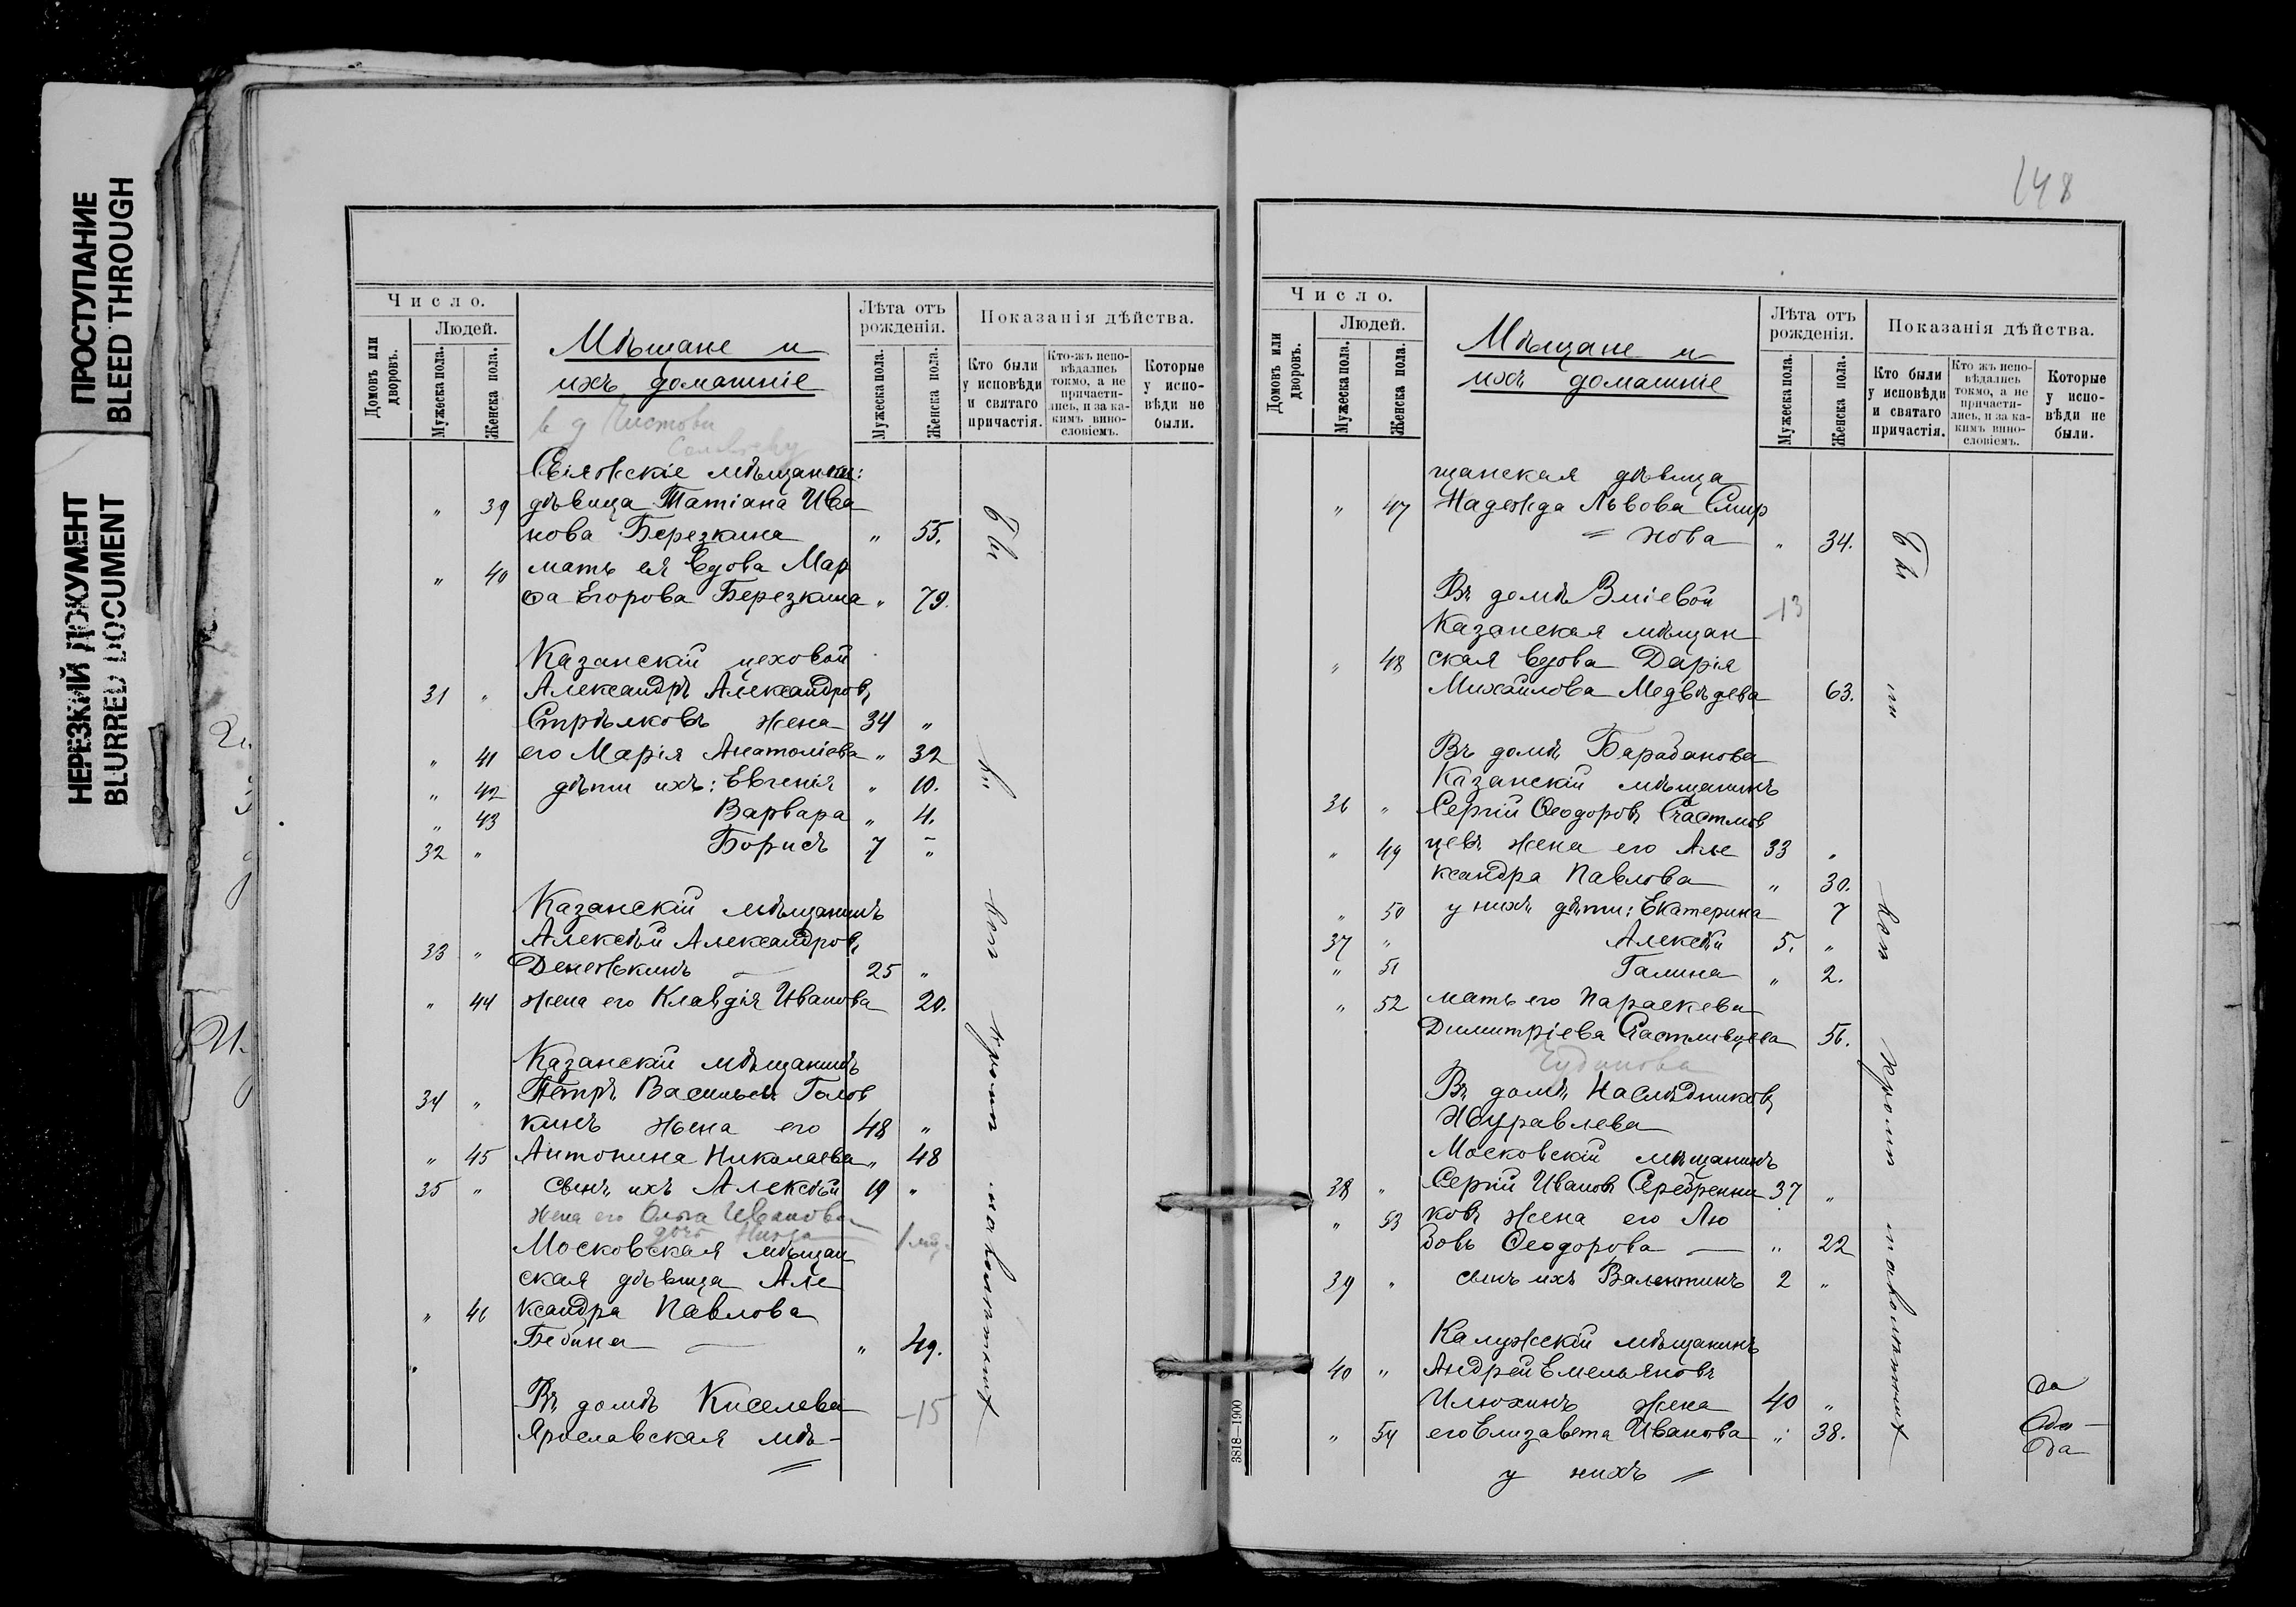 ПРОСТУПАНИЕ
BLEED THROUGH
НЕРЕЗКИЙ ДОКУМЕНТ
BLURRED DOCUMENT
Число.
Людей.
Домовъ или дворовъ.
Мужеска пола.
Женска пола.
Мѣщане и
ихъ домашніе
в д Чистови
Лѣта отъ рожденія.
Мужеска пола.
Женска пола.
Показанія дѣйства.
Кто были у исповѣди и святаго причастія.
Кто-жъ исповѣдались токмо, а не причастились, и за какимъ винословіемъ.
Которые у исповѣди не были.
Свіяжскіе мѣщанки:
" 39 дѣвица Татіана Ива
нова Березкина " 55.
" 40 мать ея вдова Мар
ѳа Егорова Березкина " 79.
Казанскій цеховой
31 " Александръ Александровъ
Стрѣлковъ жена 34 "
" 41 его Марія Анатоліева " 32
" 42 дѣти ихъ: Евгенія " 10.
" 43 Варвара " 4.
32 " Борисъ 7 "
Казанскій мѣщанинъ
33 " Алексѣй Александровъ
Денежкинъ — 25 "
" 44 жена его Клавдія Иванова 20.
Казанскій мѣщанинъ
34 " Петръ Васильевъ Голов
кинъ жена его 48 "
" 45 Антонина Николаева " 48
35 " сынъ ихъ Алексѣй 19 "
жена его Ольга Иванова
дочь
Московская мѣщан
ская дѣвица Але
" 46 ксандра Павлова
Бебина — " 49.
Въ домѣ Киселева -15
Ярославская мѣ-
Бы
ли
вси
кроми
малолѣтнихъ
148
Число.
Людей.
Домовъ или дворовъ.
Мужеска пола.
Женска пола.
Мѣщане и
ихъ домашніе
Лѣта отъ рожденія.
Мужеска пола.
Женска пола.
Показанія дѣйства.
Кто были у исповѣди и святаго причастія.
Кто жъ исповѣдались токмо, а не причастились, и за какимъ винословіемъ.
Которые у исповѣди не были.
щанская дѣвица
" 47 Надежда Львова Смир
= нова " 34.
Въ домѣ Зміевой -13
Казанская мѣщан
" 48 ская вдова Дарія
Михайлова Медвѣдева 63.
Въ домѣ Барабанова
Казанскій мѣщанинъ
36 " Сергій Ѳеодоровъ Счастлив
" 49 цевъ жена его Але 33 "
ксандра Павлова " 30.
" 50 у нихъ дѣти: Екатерина 7
37 " Алексѣй 5. "
" 51 Галина " 2.
" 52 мать его Параскева
Димитріева Счастливцева 56.
Чудинова
Въ домѣ Наслѣдниковъ
Журавлева
Московскій мѣщанинъ
38 " Сергій Ивановъ Серебренни 37 "
" 53 ковъ жена его Лю
бовь Ѳеодорова — " 22
39 " сынъ ихъ Валентинъ 2 "
Калужскій мѣщанинъ
40 " Андрей Емельяновъ
Илюхинъ жена 40 "
" 54 его Елизавета Иванова " 38.
у нихъ =
Бы
ли
вси
кроми
малолѣтнихъ
3818—1900